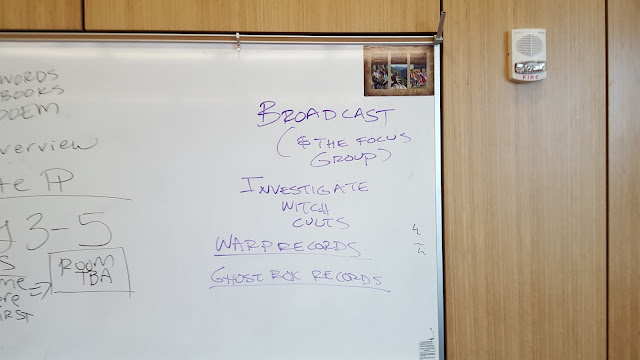 WORDS
BOOKS
POEM
overview
te PP
3-5
ROOM
TBA
me
ere
IRST
BROADCAST
($ THE FOCUS
GROUP)
INVESTIGATE
WITCH
CULTS
WARP RECORDS
GHOST BOX RECORDS
FIRE